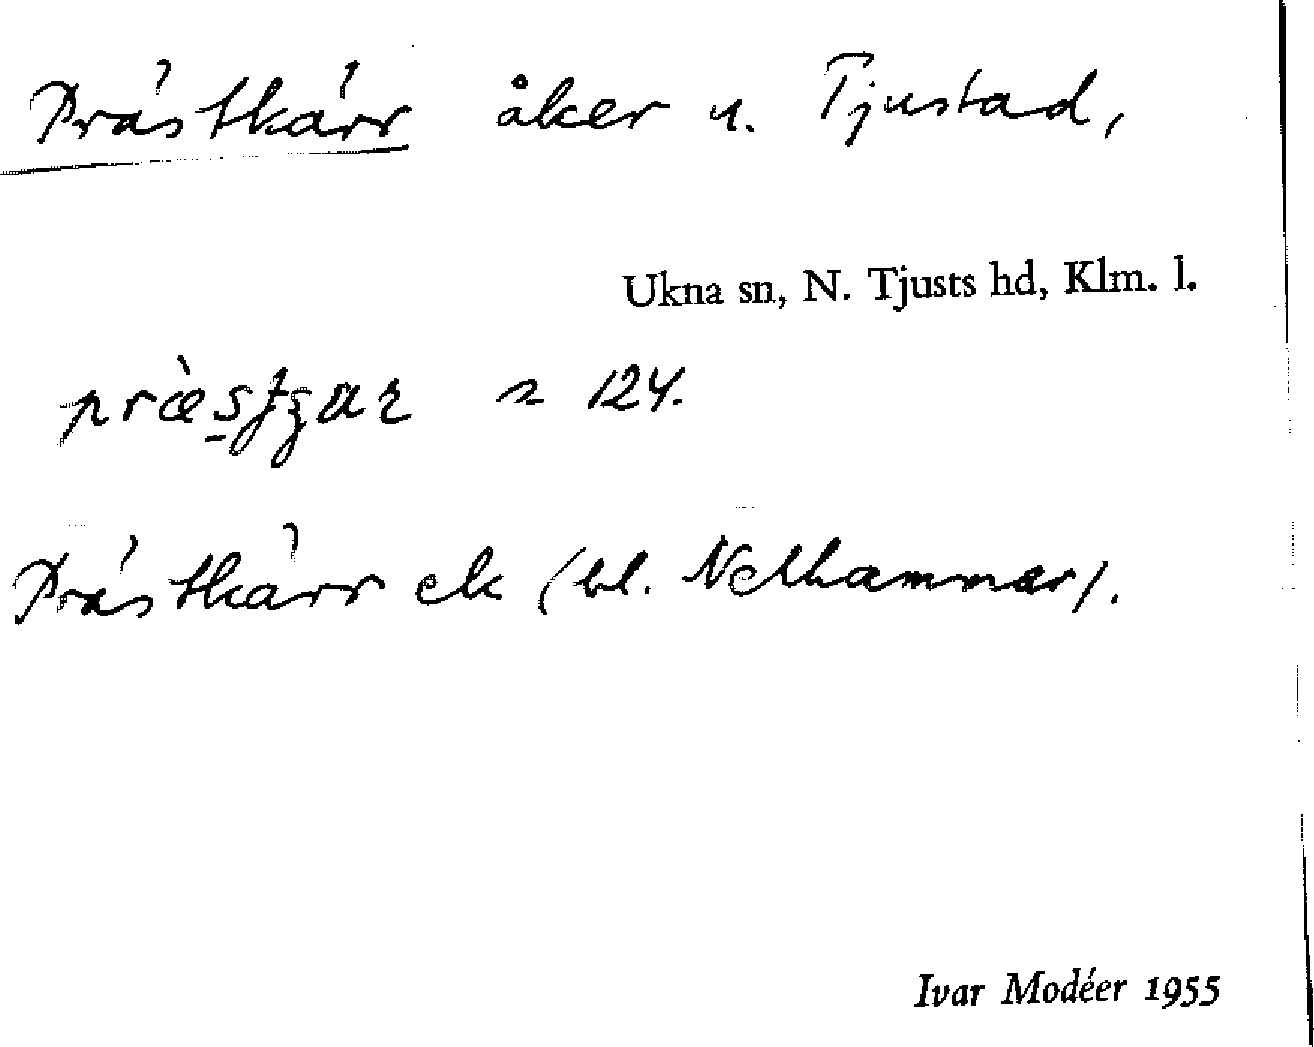 Prästkärr åker u. Tjustad,
Ukna sn, N. Tjusts hd, Klm. l.
n 124.
Prästkärr ek (bl.
Ivar Modéer 1955